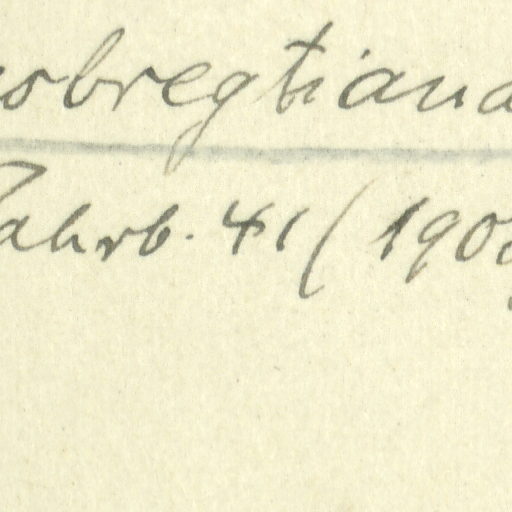 osbregtiana
Jahrb. 41 (190